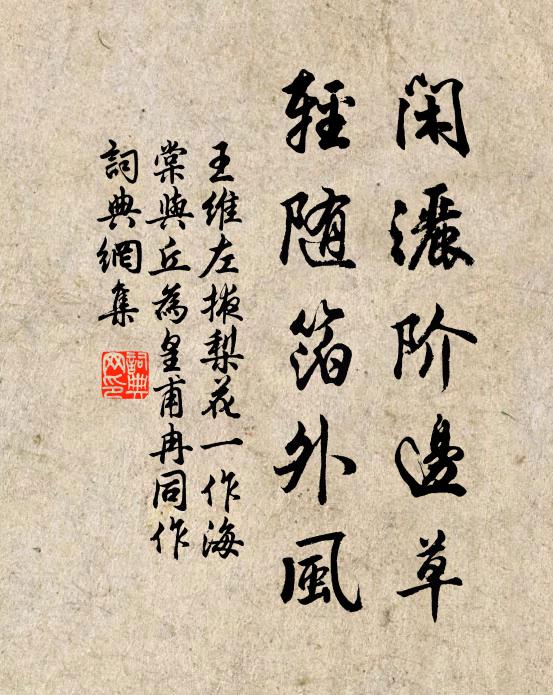 闲灑阶邊草
輕随箔外風
王維左掖梨花一作海
棠與丘為皇甫冉同作
詞典網集
詞典網印